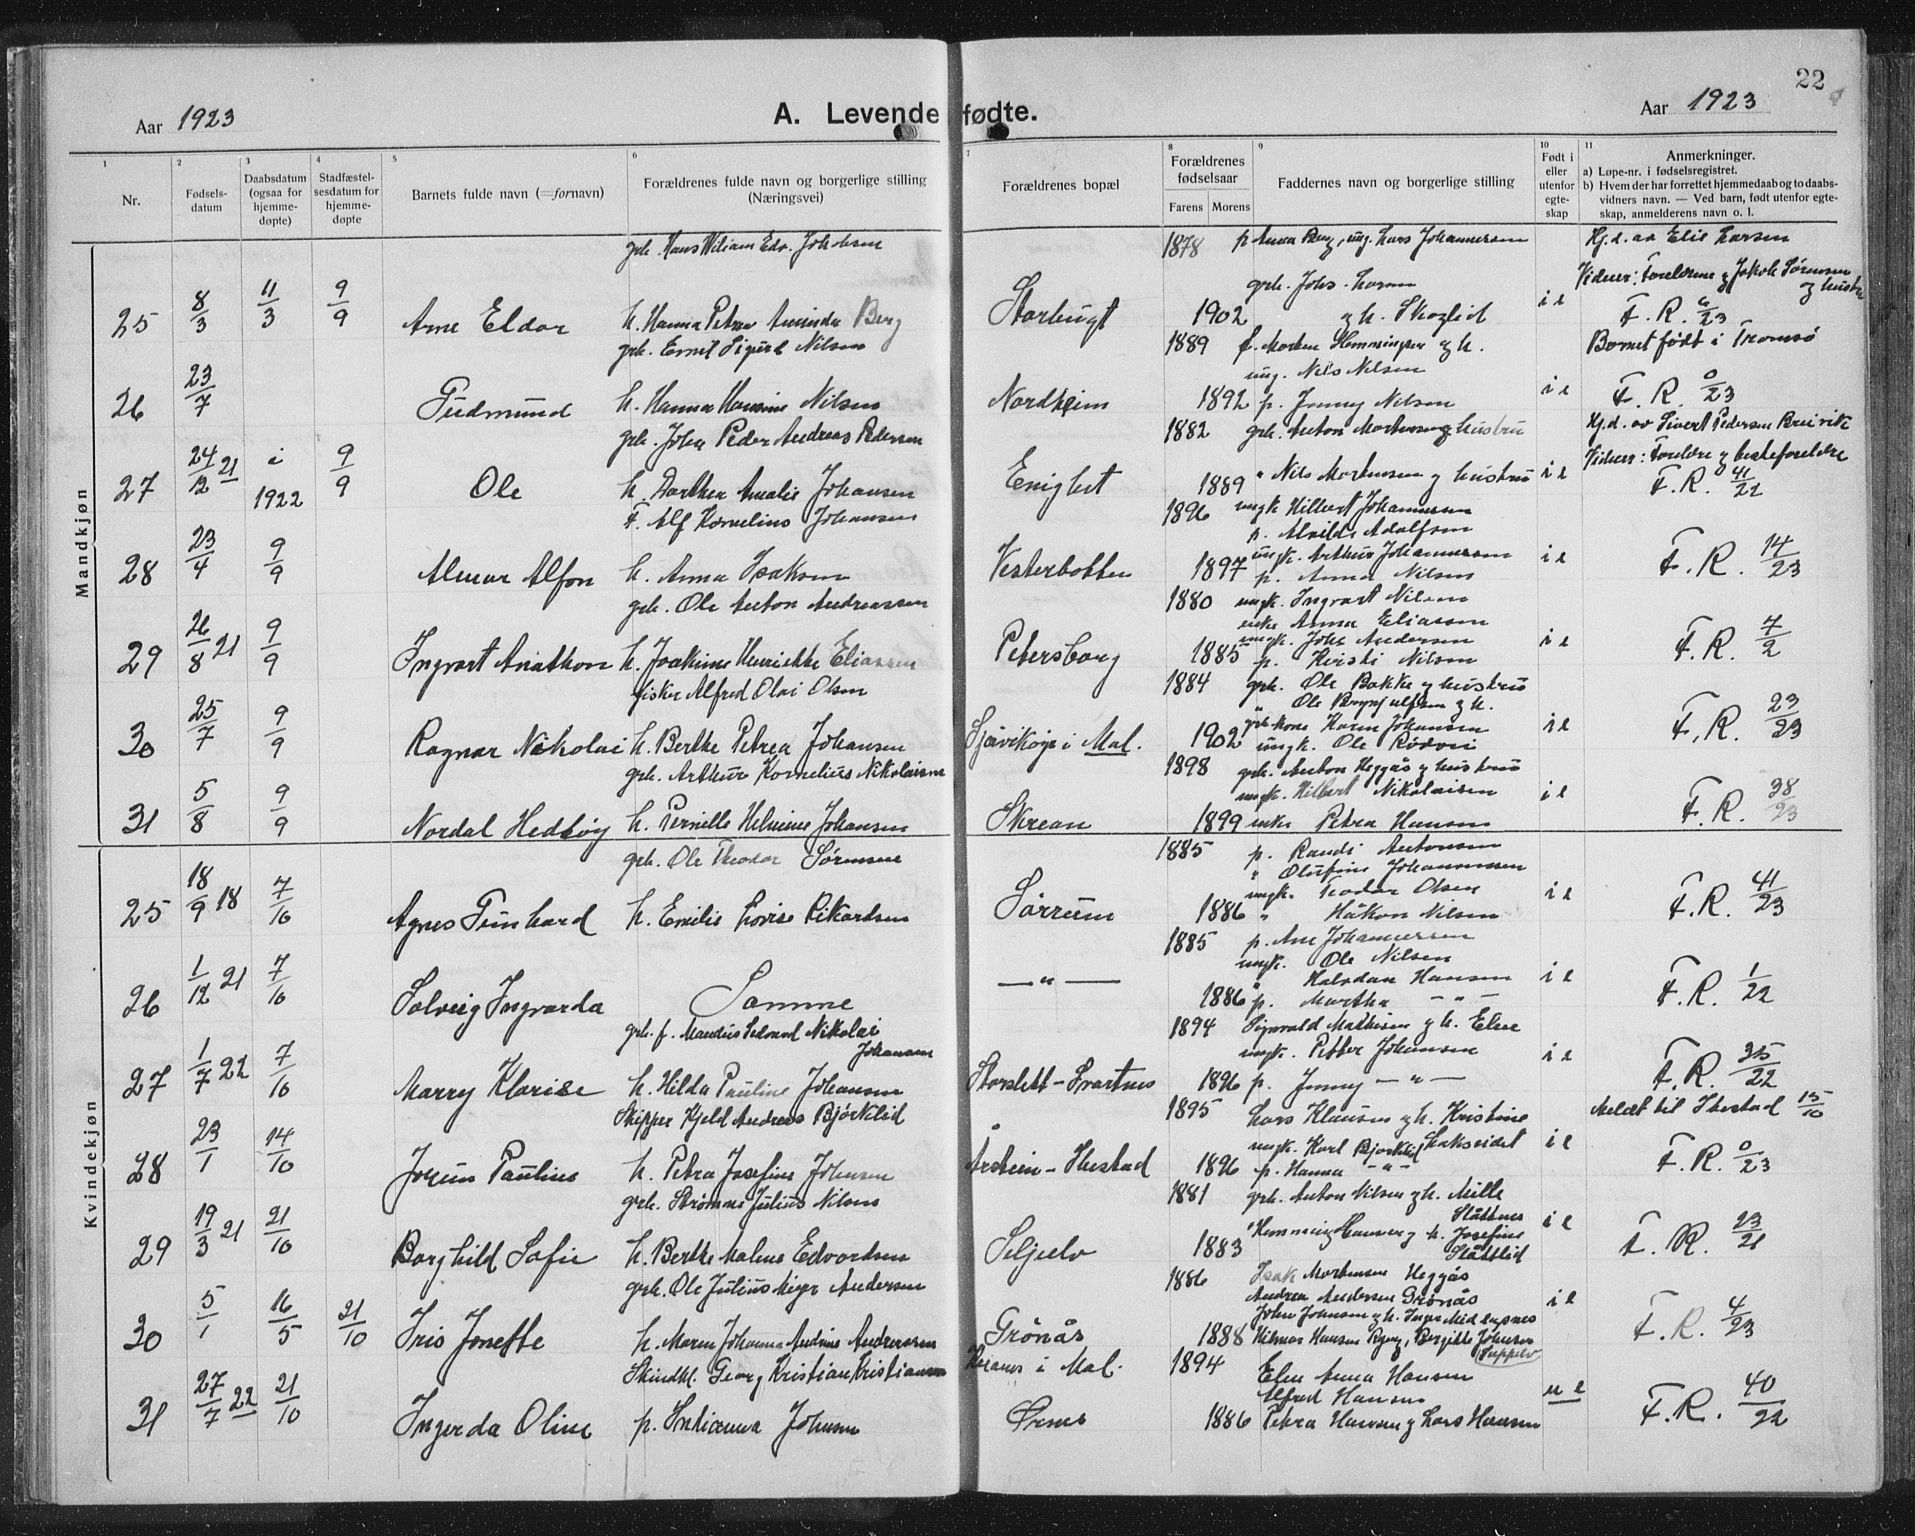 22
Aar 1923 A. Levende fødte. Aar 1923
1 2 3 4 5 6 7 8 9 10 11
Nr. Fødsels-datum Daabsdatum (ogsaa for hjemme-døpte) Stadfæstel-sesdatum for hjemme-døpte Barnets fulde navn (=fornavn) Forældrenes fulde navn og borgerlige stilling (Næringsvei) Forældrenes bopæl Forældrenes fødselsaar Farens Morens Faddernes navn og borgerlige stilling Født i eller utenfor egte-skap Anmerkninger.
a) Løpe-nr. i fødselsregistret.
b) Hvem der har forrettet hjemmedaab og to daabs-vidners navn. — Ved barn, født utenfor egte-skap, anmelderens navn o. l.
Mandkjøn
grb. Hans Wiliam Edv. Johansen 1878 p Anna Berg, ung. Lars Johannessen Hj.d. av Elis Larsen
grb. Johs. Larsen Vidner: Forældrene og Jakob Sørensen og hustru
25 8/3 11/3 9/9 Arne Eldor h. Hanna Petra Aminda Berg Storbugt 1902 g h. Skoglid i e F. R. 6/23
grb. Ernil Sigurd Nilsen 1889 f. Morten Hemmingsen g h. Barnet født i Tromsø
ung. Nils Nilsen
26 23/7 Gudmund h. Hanna Hansine Nilsen Nordheim 1892 p. Jenny Nilsen i e F. R. 0/23
grb. Johan Peder Andreas Pedersen 1882 grb. Anton Mortensen g hustru Hj.d. av Sivert Pedersen Breivik
Vidner: Forældre g besteforældre
27 24/12 21 i 1922 9/9 Ole h. Dorthea Amalie Johansen Enighet 1889 " Nils Mortensen g hustru i e F. R. 41/22
F. Alf Kornelius Johansen 1896 ungk Hilbert Johannessen
p. Alvilde Adolfsen
28 23/4 9/9 Almar Alfon h. Anna Isaksen Vesterbotten 1897 ungk. Arthur Johannessen i e F. R. 14/23
p. Anna Nilsen
grb. Ole Anton Andreassen 1880 ungk. Ingvart Nilsen
enke Anna Eliassen
29 26/8 21 9/9 Ingvart Anathon h. Joakime Henrikke Eliassen Petersborg 1885 ungk. Johs Andersen i e F. R. 7/2
p. Kirsti Nilsen
fisker Alfred Olai Olsen 1884 grb. Ole Bakke g hustru
" Ole Brynjulfsen g h.
30 25/7 9/9 Ragnar Nikolai h. Berthe Petrea Johansen Sjøvikøir i Mal. 1902 grb kone Karen Johansen i e F. R. 23/23
ungk. Ole Rødvei
grb. Arthur Kornelius Nikolaisen 1898 grb. Anton Heggås g hustru
ungk. Hilbert Nikolaisen
31 5/8 9/9 Nordal Hedløy h. Pernille Helmine Johansen Skrean 1899 enke Petra Hansen i e F. R. 38/23
Kvindekjøn
grb. Ole Theodor Sørensen 1885 p. Randi Antonsen
" Olufine Johannessen
25 18/9 18 7/10 Agnes Gunhard h. Emilie Lovise Rikardsen Sørrum 1886 ungk. Teodor Olsen i e F. R. 41/23
" Håkon Nilsen
1885 p. Ane Johannessen
ungk. Ole Nilsen
26 1/12 21 7/10 Solveig Ingvarda Samme — " — 1886 " Halvdan Hansen i e F. R. 1/22
p. Martha — " —
grb. f. Mandius Edvard Nikolai Johansen 1894 Sigvald Mathisen g h. Eline
27 1/7 22 7/10 Marry Klarise h. Hilda Pauline Johansen Storslett - Svartnes 1896 ungk. Petter Johansen i e F. R. 35/22
p. Jenny — " —
Skipper Kjeld Andreas Bjørklid 1895 Lars Klausen g h. Kristine Lakseidet Meldt til Ibestad 15/10
28 23/1 14/10 Jorun Pauline h. Petra Josefine Johansen Årstein - Ibestad 1896 ungk. Karl Bjørklid i e F. R. 0/23
p. Hanna — " —
grb. Strømme Julius Nilsen 1881 grb. Anton Nilsen g h. Mille Slåttnes
29 19/3 21 21/10 Borghild Sofie h. Berthe Malene Edvardsen Seljelv 1883 " Hemming Hansen g h. Josefine Slåttlid i e F. R. 23/21
grb. Ole Julius Meyer Andersen 1886 Isak Mortensen Heggås
Andrea Andersen Grønås
30 5/1 16/5 21/10 Iris Jonette h. Maren Johanna Andrine Andreassen Grønås 1888 John Johnsen g h. Inger Middagsnes i e F. R. 4/23
Hilmar Hansen Ryeng, Bergitte Johnsen Sappelv
Skindhl. Georg Kristian Kristiansen i Mal. 1894 Elen Anna Hansen
Alfred Hansen
31 27/7 22 21/10 Ingerda Oline p. Johnsen Ørnes 1886 Petra Hansen g Lars Hansen u e F. R. 40/22